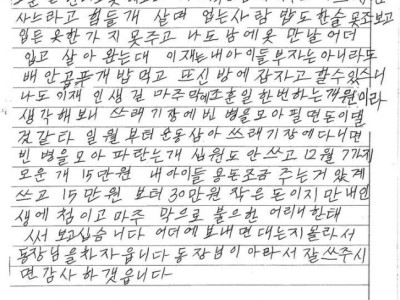 사느라고 힘들개 살며 없는사람 밥도 한술 못조보고
입든 옷한가지 못주고 나도 남에 옷 만날 어더
입고 살아왔는대 이재는 내아이들 부자는 아니라도
배 안곱푸개 밥먹고 뜨신 방에 잠자고 할수있스니
나도 이재 인생길 마주막에 조흔일 한번하는개 원이라
생각해보니 쓰래기장에 빈 병을모아 필면 돈이댈
것갇다 일월부터 운동삼아 쓰래기장에 다니면
빈 병을모아 파탄는개 십원도 안쓰고 12월 7가지
모운개 15만원 내아이들 용돈조금 주는거 았게
쓰고 15만원 보터 30만원 작은 돈이지만 내인
생에 첨이고 마주 막으로 불으한 어리내한태
써보고십습니다 어더에 보내면 대는지 몰라서
동장님을 차자 읍니다 동장님이 아라서 잘쓰주시
면 감사하갯읍니다